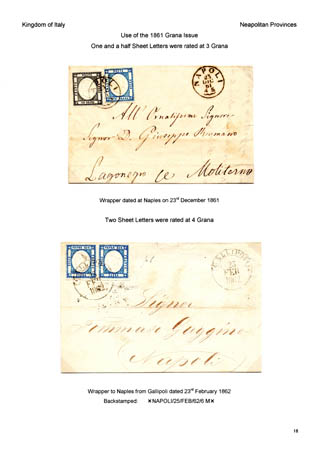 Kingdom of Italy
Neapolitan Provinces
Use of the 1861 Grana Issue
One and a half Sheet Letters were rated at 3 Grana
NAPOLI
23
DIC
All' Ornatissimo Signore
Signor D. Giuseppe
Lagonegro Moliterno
Wrapper dated at Naples on 23rd December 1861
Two Sheet Letters were rated at 4 Grana
GALLIPOLI
23
FEB
1862
FEB
1862
Signor
Tommaso
Napoli
Wrapper to Naples from Gallipoli dated 23rd February 1862
Backstamped: ✕NAPOLI/25/FEB/62/6 M✕
18